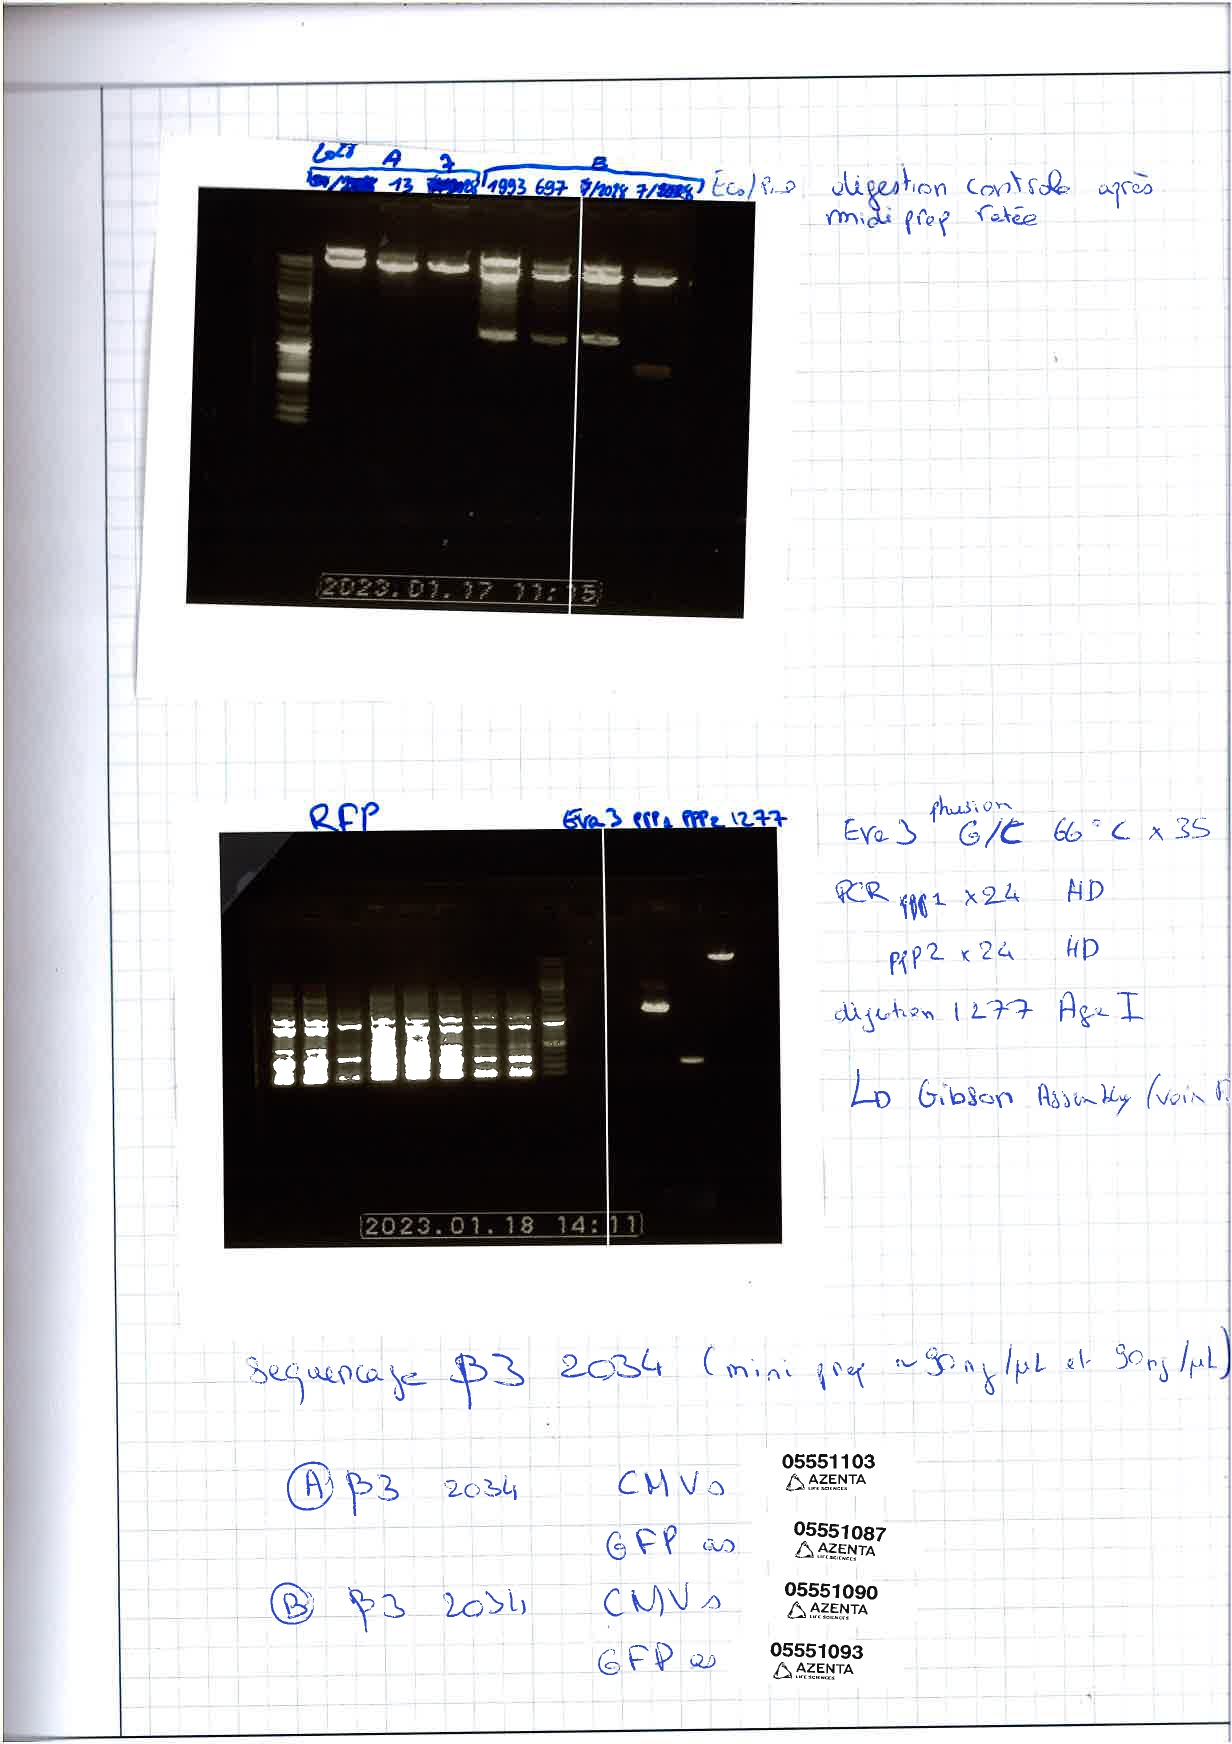 A
B
13
1993 697
Eco/
digestion controle après
midi prep ratée
2023.01.17 11:15
RFP
Eva 3
1277
phusion
Eva 3 G/C 66°C x 35
PCR x24 HD
x 24 HD
digestion 1277 Age I
Gibson Assembly (voir
2023.01.18 14:11
sequencage β3 2034 (mini prep ~ 90 ng/µL et 90 ng/µL)
A β3 2034 CMV s
05551103
AZENTA
LIFE SCIENCES
GFP as
05551087
AZENTA
LIFE SCIENCES
B β3 2034 CMV s
05551090
AZENTA
LIFE SCIENCES
GFP as
05551093
AZENTA
LIFE SCIENCES